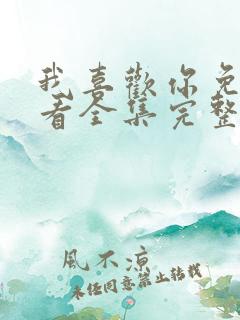 我喜歡你免
看全集完整
風不涼
未经同意禁止转载